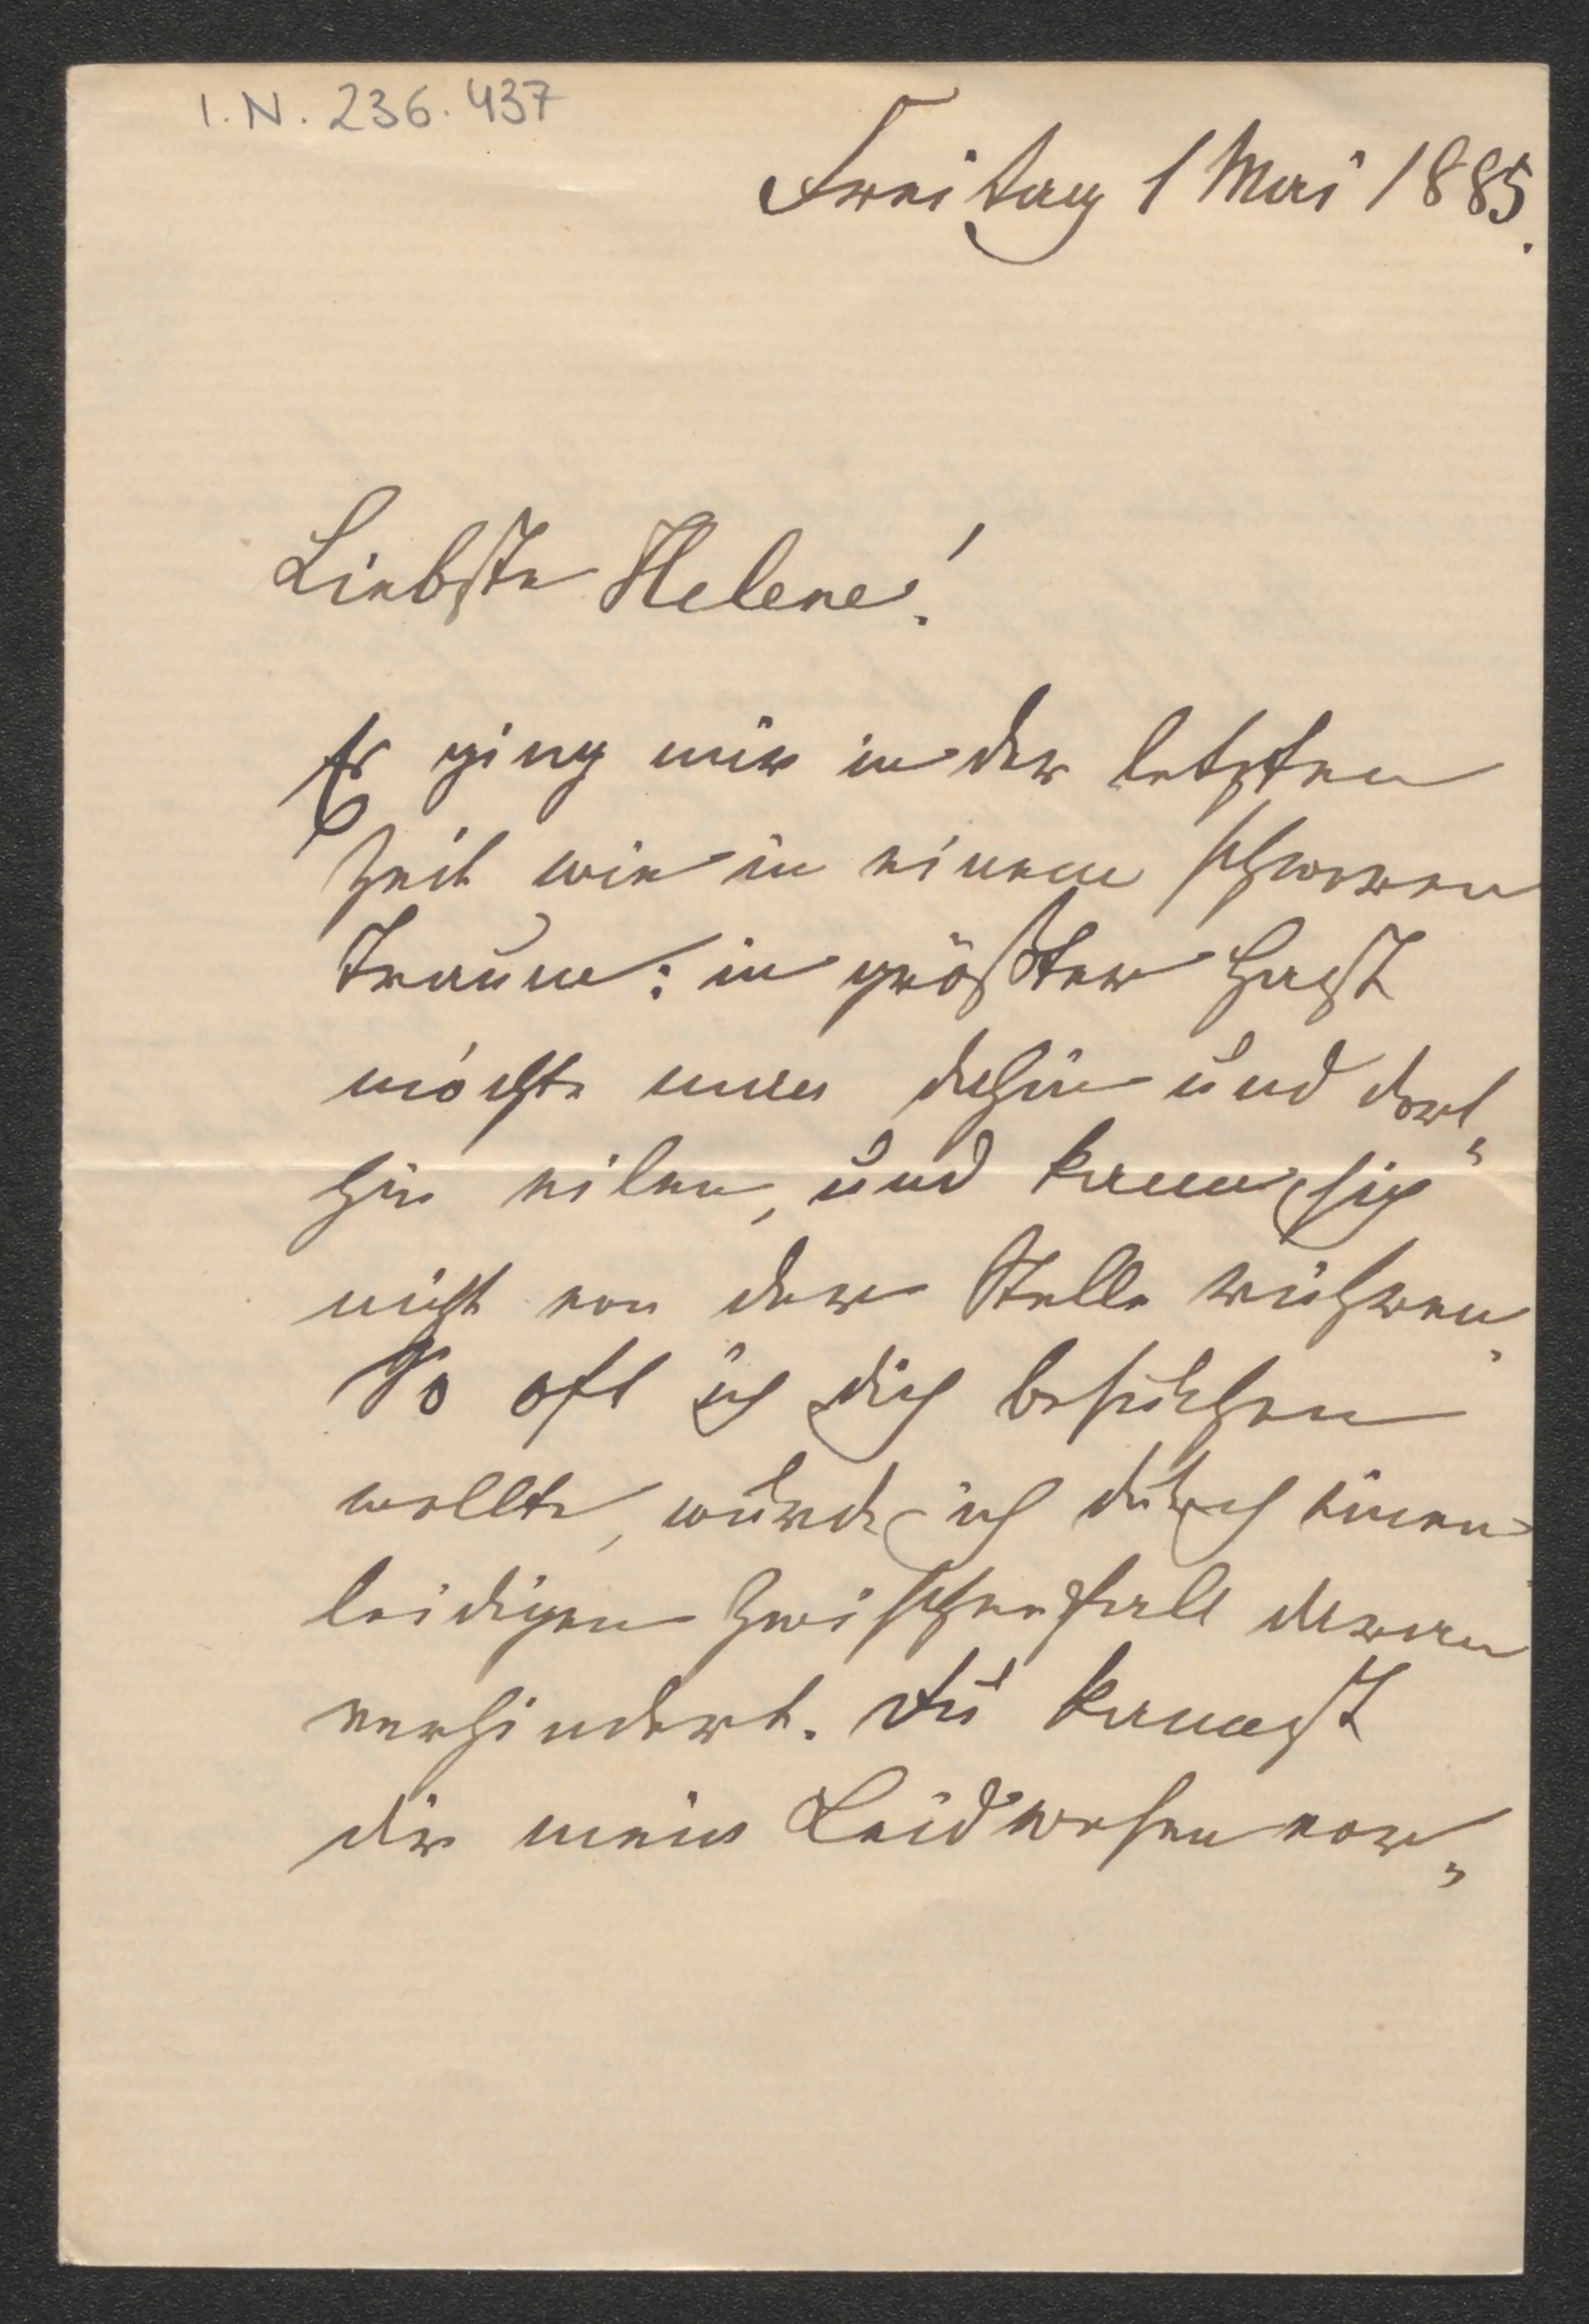 I.N. 236.437
Freitag 1 Mai 1885.
Liebste Helene!
Es ging mir in der letzten
Zeit wie in einem schweren
Traume: in größter Hast
möchte man dahin und dort„
hin eilen, und kann sich
nicht von der Stelle rühren.
So oft ich dich besuchen
wollte, wurde ich durch einen
leidigen Zwischenfall daran
verhindert. Du kannst
dir mein Leidwesen vor„